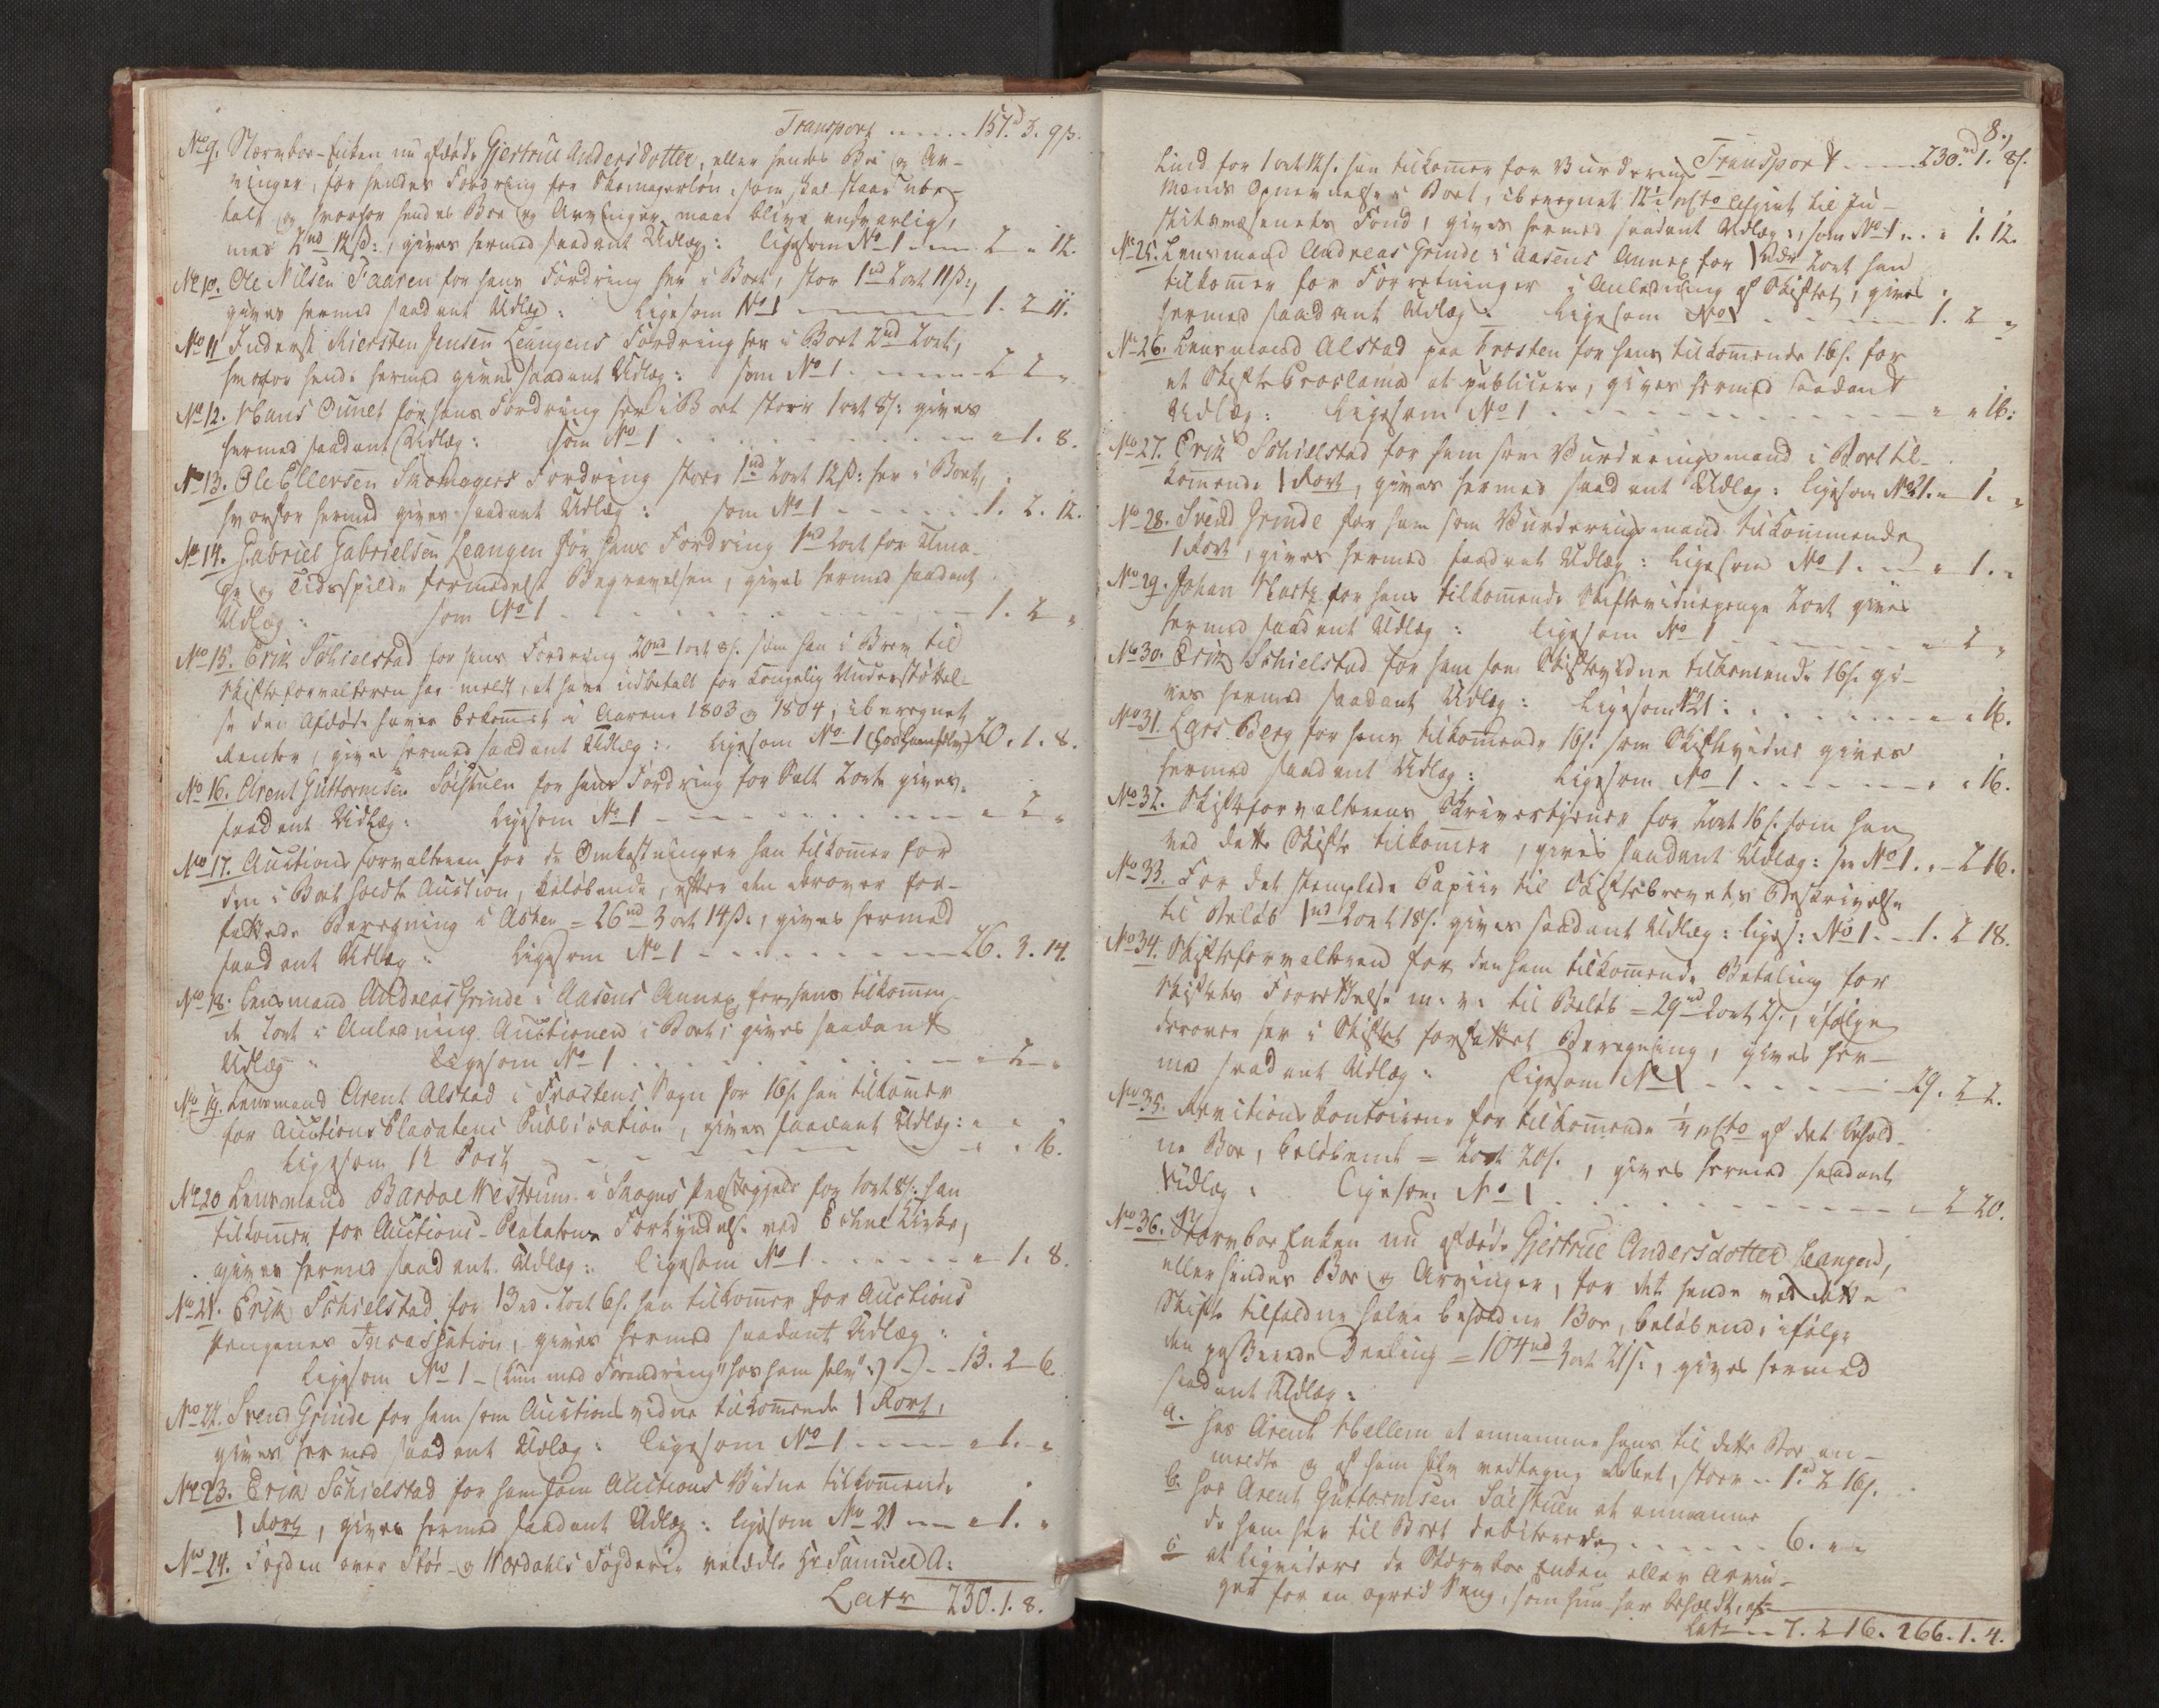 Transport ..... 157rd 3. 9ß.
No 9. Stervboe-Enken nu afdøde Gjertrue Andersdotter, eller hendes Boe og Ar-
vinger, for hendes Fordring for Skomagerløn, som skal staae ube-
talt og hvorfor hendes Boe og Arvinger maae blive ansvarlig,
med 2rd 12ß:, gives hermed saadant Udlæg: ligesom No 1 ... 2 " 12.
No 10. Ole Nilsen Faaren for hans Fordring her i Boet, stor 1rd 2ort 11ß:,
gives hermed saadant Udlæg: Ligesom No 1 ... 1. 2 11.
No 11 Inderst Kiersten Jensen Leangens Fordring her i Boet 2rd 2ort,
hvorfor hende hermed gives saadant Udlæg: som No 1 ... 2 2 "
No 12. Hans Ounet for hans Fordring her i Boet stoer 1ort 8s: gives
hermed saadant Udlæg: som No 1 ... " 1. 8.
No 13. Ole Ellersen Skomagers Fordring stoer 1rd 2ort 12ß: her i Boet,
hvorfor hermed gives saadant Udlæg: som No 1 ... 1. 2. 12.
No 14. Gabriel Gabrielsen Leangen for hans Fordring 1rd 2ort for Uma-
ge og Tidsspilde formedelst Begravelsen, gives hermed saadant
Udlæg: som No 1 ... 1. 2 "
No 15. Erik Schielstad for hans Fordring 20rd 1ort 8s. som han i Brev til
Skifteforvalteren har meldt, at have udbetalt for Kongelig Understøttel-
se den Afdøde haver bekommet i Aarene 1803 og 1804, iberegnet
Renter, gives hermed saadant Udlæg: ligesom No 1 (hos ham selv) 20. 1. 8.
No 16. Arent Guttormsen Soelstuen for hans Fordring for Salt 2ort gives
saadant Udlæg: Ligesom No 1 ... " 2 "
No 17. Auctions forvalteren for de Omkostninger han tilkommer for
den i Boet holdte Auction, beløbende, efter den derover for-
fattede Beregning i Acten = 26rd 3ort 14ß:, gives hermed
saadant Udlæg: Ligesom No 1 ... 26. 3. 14.
No 18. Lensmand Andreas Grinde i Aasens Annex for hans tilkommen-
de 2ort i Anledning Auctionen i Boet, gives saadant
Udlæg: Ligesom No 1 ... " 2 "
No 19. Lensmand Arent Alstad i Frostens Sogn for 16s. han tilkommer
for Auctions Placatens Publication, gives saadant Udlæg:
Ligesom 12 Post ... " " 16.
No 20 Lensmand Bardoe Westrum i Skogns Præstegjeld for 1ort 8s: han
tilkommer for Auctions-Plakatens Forkyndelse ved Echne Kirke,
gives hermed saadant Udlæg: ligesom No 1 ... " 1. 8.
No 21. Erik Schielstad for 13rd. 2ort 6s. han tilkommer for Auctions
pengenes Incassation, gives hermed saadant Udlæg:
ligesom No 1 - (kun med Forandring "hos ham selv":) ... 13. 2 6
No 22. Svend Grinde for ham som Auctions vidne tilkommende 1 Rort,
gives hermed saadant Udlæg: ligesom No 1 ... " 1. "
No 23. Erik Schielstad for ham som Auctions Vidne tilkommende
1 Rort, gives hermed saadant Udlæg: ligesom No 21 ... " 1. "
No 24. Fogden over Stør- og Værdahls Fogderie velædle Hr Samuel A:
Latr 230. 1. 8.
8.
Transport ... 230rd 1. 8s.
Lind for 1ort 12s. han tilkommer for Vurderings
Mænds Opnævnelse i Boet, iberegnet 12½ pCto Afgivt til Ju-
stitsvæsenets Fond, gives hermed saadant Udlæg:, som No 1 ... " 1. 12.
No 25. Lensmand Andreas Grinde i Aasens Annex for 1rdr 2ort han
tilkommer for Forretninger i Anledning af Skiftet, gives
hermed saadant Udlæg: Ligesom No 1 ... 1. 2 "
No 26. Lensmand Alstad paa Frosten for hans tilkommende 16s. for
et Skifte Proclama at publicere, gives hermed saadant
Udlæg: Ligesom No 1 ... " " 16:
No 27. Erik Schielstad for ham som Vurderingsmand i Boet til-
kommende 1 Rort, gives hermed saadant Udlæg: ligesom No 21. " 1. "
No 28. Svend Grinde for ham som Vurderingsmand tilkommende
1 Rort, gives hermed saadant Udlæg: ligesom No 1 ... " 1. "
No 29. Johan for hans tilkommende Skiftevidnepenge 2ort gives
hermed saadant Udlæg: ligesom No 1 ... " 2 "
No 30. Erik Schielstad for ham som Skiftevidne tilkommende 16s. gi-
ves hermed saadant Udlæg: Ligesom No 21: ... " " 16.
No 31. Lars Berg for hans tilkommende 16s. som Skiftevidne gives
hermed saadant Udlæg: Ligesom No 1 ... " " 16.
No 32. Skifteforvalterens Skrivertjener for 2ort 16s. som han
ved dette Skifte tilkommer, gives saadant Udlæg: see No 1. " 2 16.
No 33. For det stemplede Papiir til Skiftebrevets Beskrivelse
til Beløb 1rd 2ort 18s. gives saadant Udlæg: liges: No 1 ... 1. 2 18.
No 34. Skifteforvalteren for den ham tilkommende Betaling for
Skiftets Forrettelse m: v: til Beløb = 29rd 2ort 2s., ifølge
derover her i Skiftet forfattet Beregning, gives her-
med saadant Udlæg: Ligesom No 1 ... 29. 2 2.
No 35. Revitions Contoirene for tilkommende ¼ pCto af det behold-
ne Boe, beløbende = 2ort 20s., gives hermed saadant
Udlæg: Ligesom No 1 ... " 2 20.
No 36. Stervboe Enken nu afdøde Gjertrue Andersdotter Leangen,
eller hendes Boe og Arvinger, for det hende ved dette
Skifte tilfaldne halve beholdne Boe, beløbende, ifølge
den passerede Deeling = 104rd 3ort 21s., gives hermed
saadant Udlæg:
a. hos Arent Hellem at annamme hans til dette Boe an-
meldte og af ham selv vedtagne Debet, stoer ... 1rd 2 16s.
b. hos Arent Guttormsen Soelstuen at annamme
de ham her til Boet debiterede ... 6. " "
c at liqvidere de Stervboe Enken eller Arvin-
ger for en opred Seng, som hun har beholdt, af-
Latr ... 7. 2 16. 266. 1. 4.